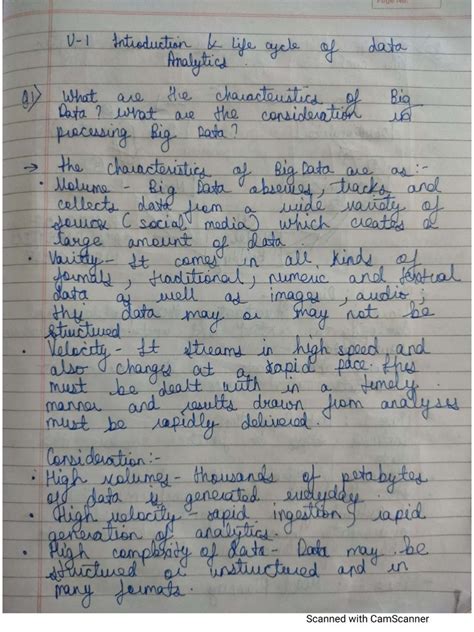 Page No.
U-1 Introduction & life cycle of data
Analytics
Q1) What are the characteristics of Big
Data? what are the consideration in
processing Big Data?
→ The characteristics of Big Data are as:-
• Volume - Big Data observes, tracks and
collects data from a wide variety of
source (social media) which creates a
large amount of data.
• Variety - It comes in all kinds of
formats, traditional, numeric and textual
data as well as images, audio;
this data may or may not be
structured.
• Velocity - It streams in high speed and
also changes at a rapid pace. This
must be dealt with in a timely
manner and results drawn from analyses
must be rapidly delivered.
Consideration:-
• High volumes - thousands of petabytes
of data is generated everyday.
• High velocity - rapid ingestion, rapid
generation of analytics.
• High complexity of data - Data may be
structured or unstructured and in
many formats.
Scanned with CamScanner